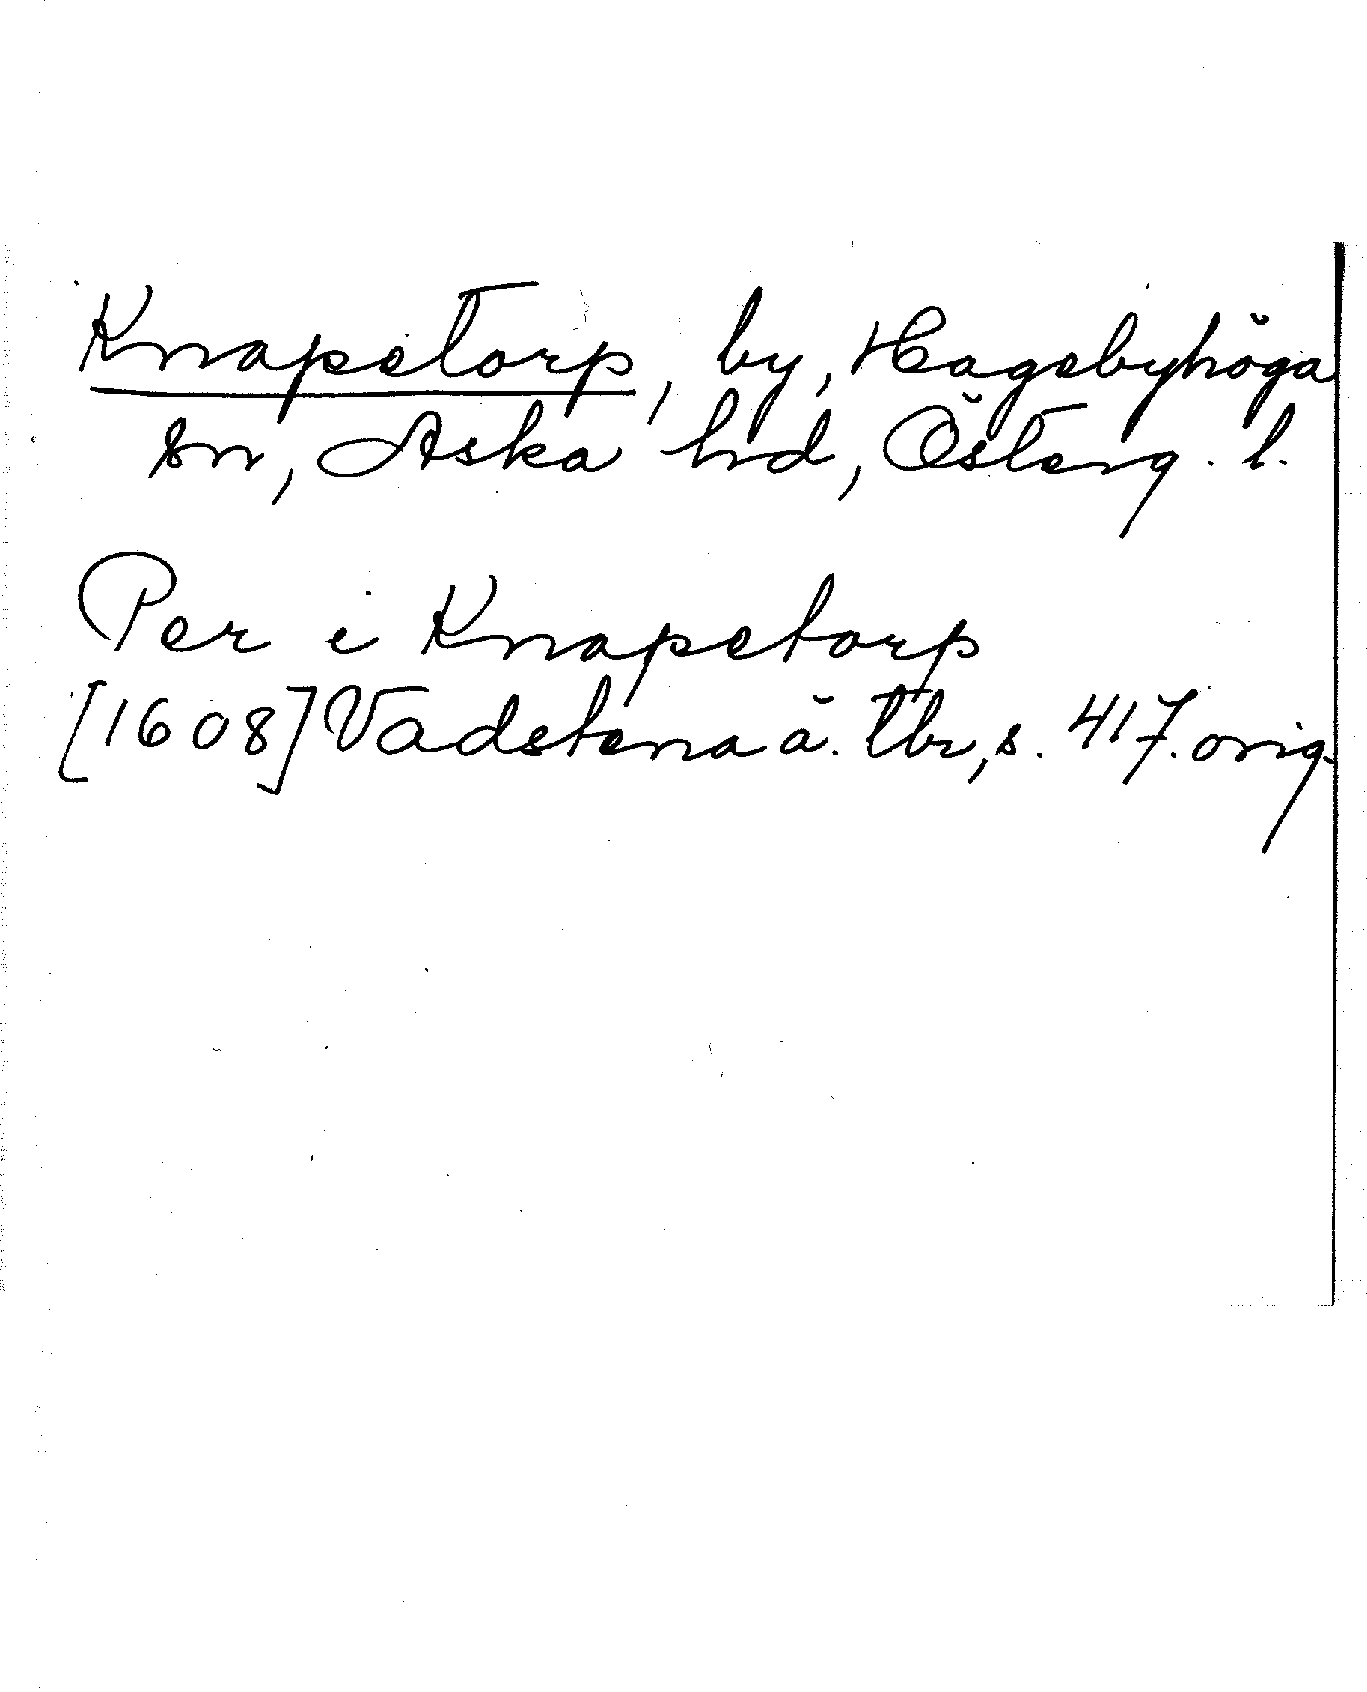 Knapetorp, by, Hagebyhöga
sn, Aska hd, Österg. l.
Per i Knapetorp
[1608] Vadstena ä. tbr, s. 417. orig.